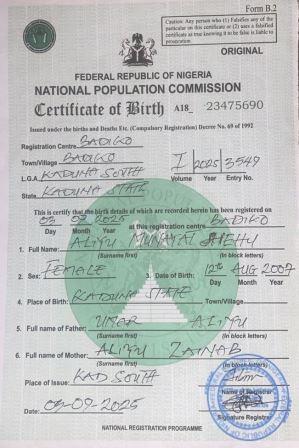 Form B.2
Caution: Any person who (1) Falsifies any of the
particular on this certificate or (2) uses a falsified
certificate as true knowing it to be false is liable to
prosecution.
ORIGINAL
FEDERAL REPUBLIC OF NIGERIA
NATIONAL POPULATION COMMISSION
Certificate of Birth A18 23475690
Issued under the births and Deaths Etc. (Compulsory Registration) Decree No. 69 of 1992
Registration Centre BADIKO
Town/Village BADIKO
L.G.A. KADUNA SOUTH I 2025 3549
Volume Year Entry No.
State KADUNA STATE
This is certify that the birth details of which are recorded herein has been registered on
03 09 2025 at this registration centre BADIKO
Day Month Year
1. Full Name: ALIYU SHEHU
(Surname first) (In block letters)
2. Sex: FEMALE 3. Date of Birth: 12th AUG 2007
Day Month Year
4. Place of Birth: KADUNA STATE Town/Village
5. Full name of Father: UMAR ALIYU
(Surname first) (In block letters)
6. Full name of Mother: ALIYU ZAINAB
(Surname first) (In block letters)
Place of Issue: KAD SOUTH
Name of Registrar
Date: 03-09-2025
Signature Registrar
NATIONAL REGISTRATION PROGRAMME